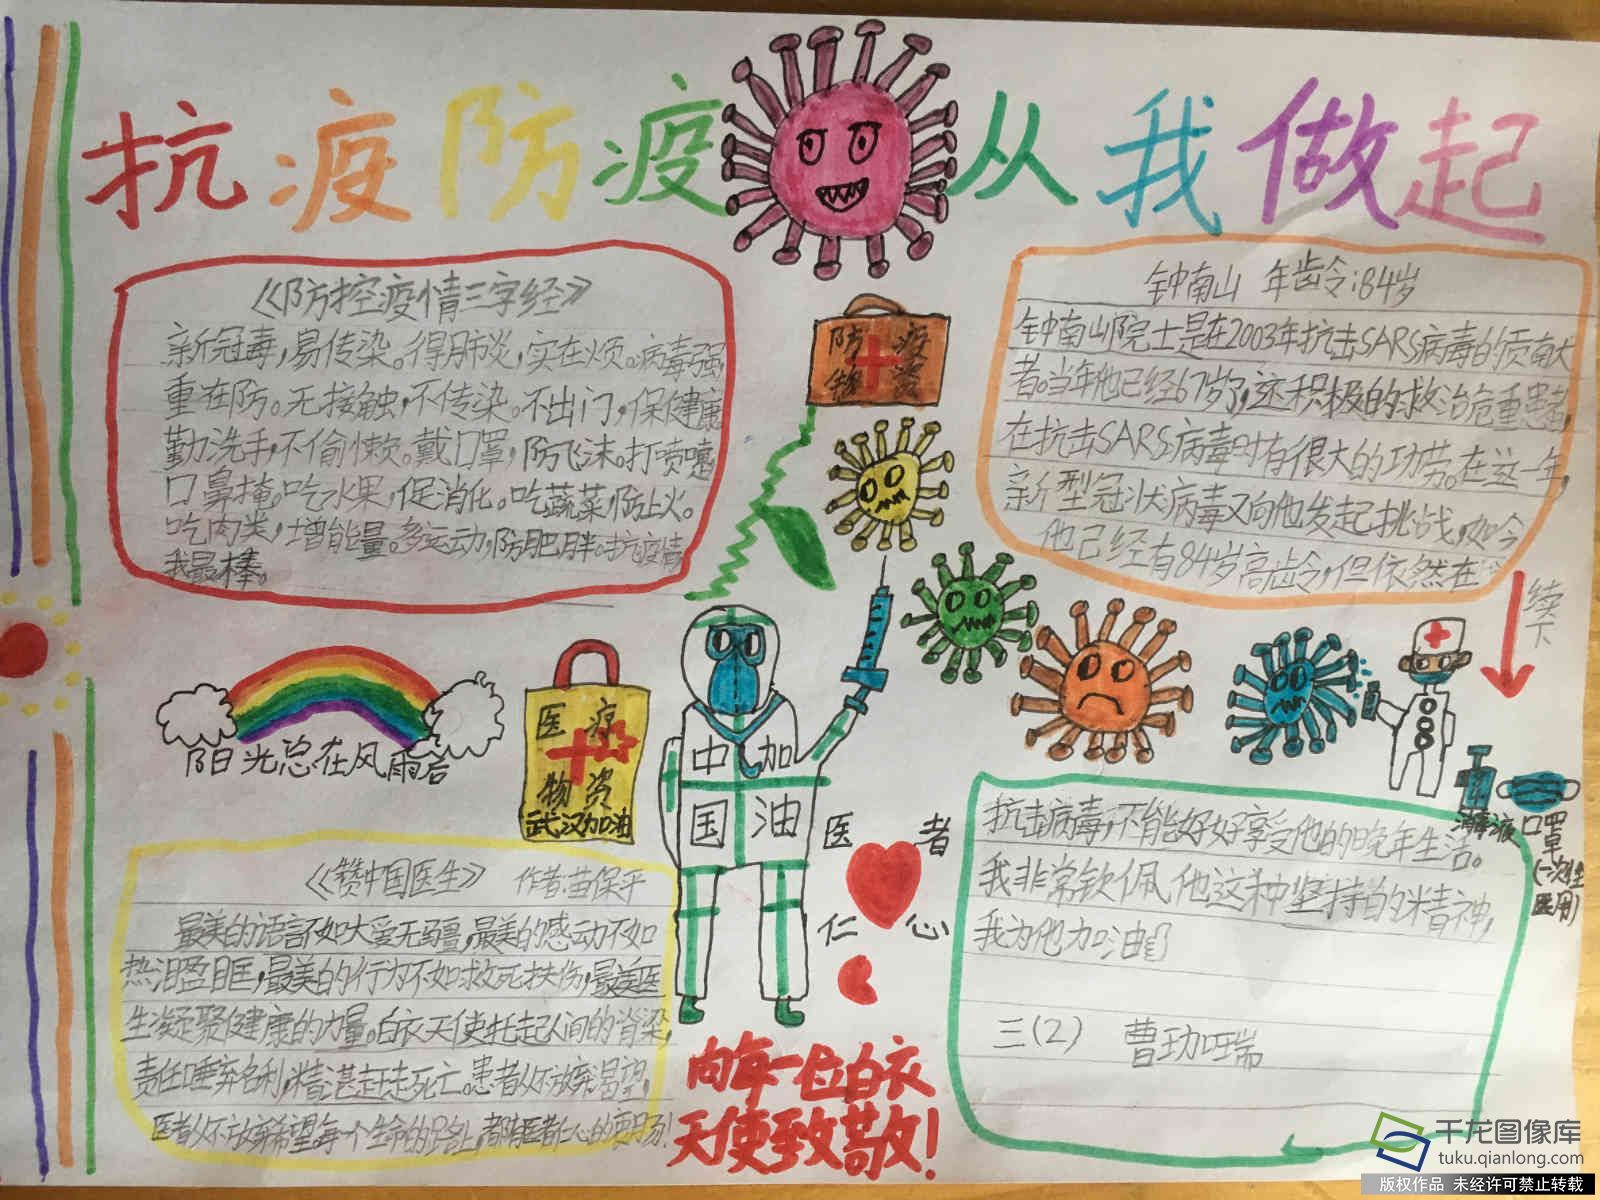 抗疫防疫 从我做起
《防控疫情三字经》
新冠毒,易传染。得肺炎,实在烦。病毒强,
重在防。无接触,不传染。不出门,保健康,
勤洗手,不偷懒。戴口罩,防飞沫。打喷嚏,
口鼻掩。吃水果,促消化。吃蔬菜,防上火。
吃肉类,增能量。多运动,防肥胖。抗疫情
我最棒。
防疫
物资
钟南山 年龄:84岁
钟南山院士是在2003年抗击SARS病毒的贡献大
者。当年他已经67岁了,还积极的救治危重患者,
在抗击SARS病毒时有很大的功劳。在这一年,
新型冠状病毒又向他发起挑战,如今
他已经有84岁高龄,但依然在
续下
阳光总在风雨后
医疗
物资
武汉加油
中国
加油
医者
仁心
消毒液
口罩
(一次性
医用)
抗击病毒,不能好好享受他的晚年生活。
我非常钦佩他这种坚持的精神,
我为他加油
三(2) 曹
《赞中国医生》 作者:苗保平
最美的语言不如大爱无疆,最美的感动不如
热泪盈眶,最美的行为不如救死扶伤,最美医
生凝聚健康的力量。白衣天使托起人间的脊梁,
责任唾弃名利,精湛赶走死亡。患者从不放弃渴望,
医者从不放弃希望,每一个生命的路上,都有医者仁心的
向每一位白衣
天使致敬!
千龙图像库
tuku.qianlong.com
版权作品 未经许可禁止转载